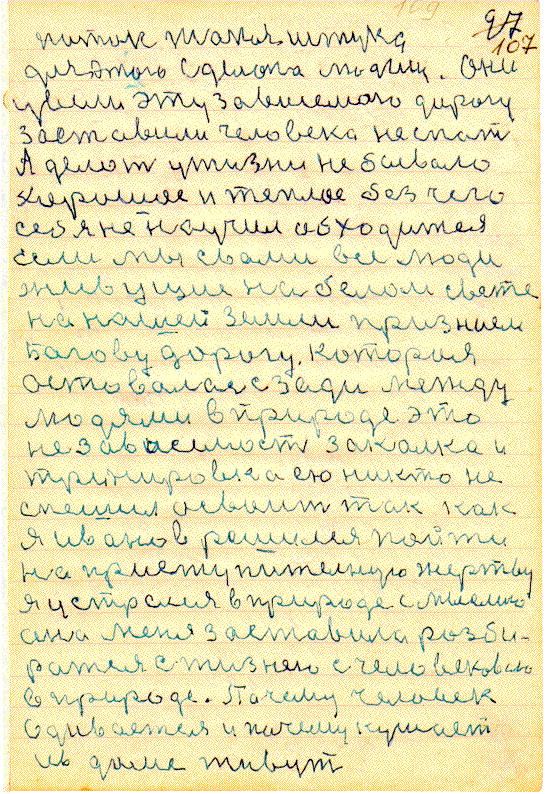 97
107
поток такая штука
для этого сделона людми. Они
увели эту зависемаю дорогу
заставили человека неспат
А делот у жизни не бывало
хорошое и теплое без чего
себя не научил обходится
если мы свами все люди
живущие на белом свете
на нашей земли признаем
Багову дорогу. которая
оставалася сзади между
людями в природе это
незавасимост закалка и
тринировка ею никто не
спешил освоит так как
я иванов решился пойти
на
я устроился в природе с мыслию
она меня заставила розби-
ратся с жизнею с человековою
в природе. Почему человек
одивается и почему кушает
и в доме живут